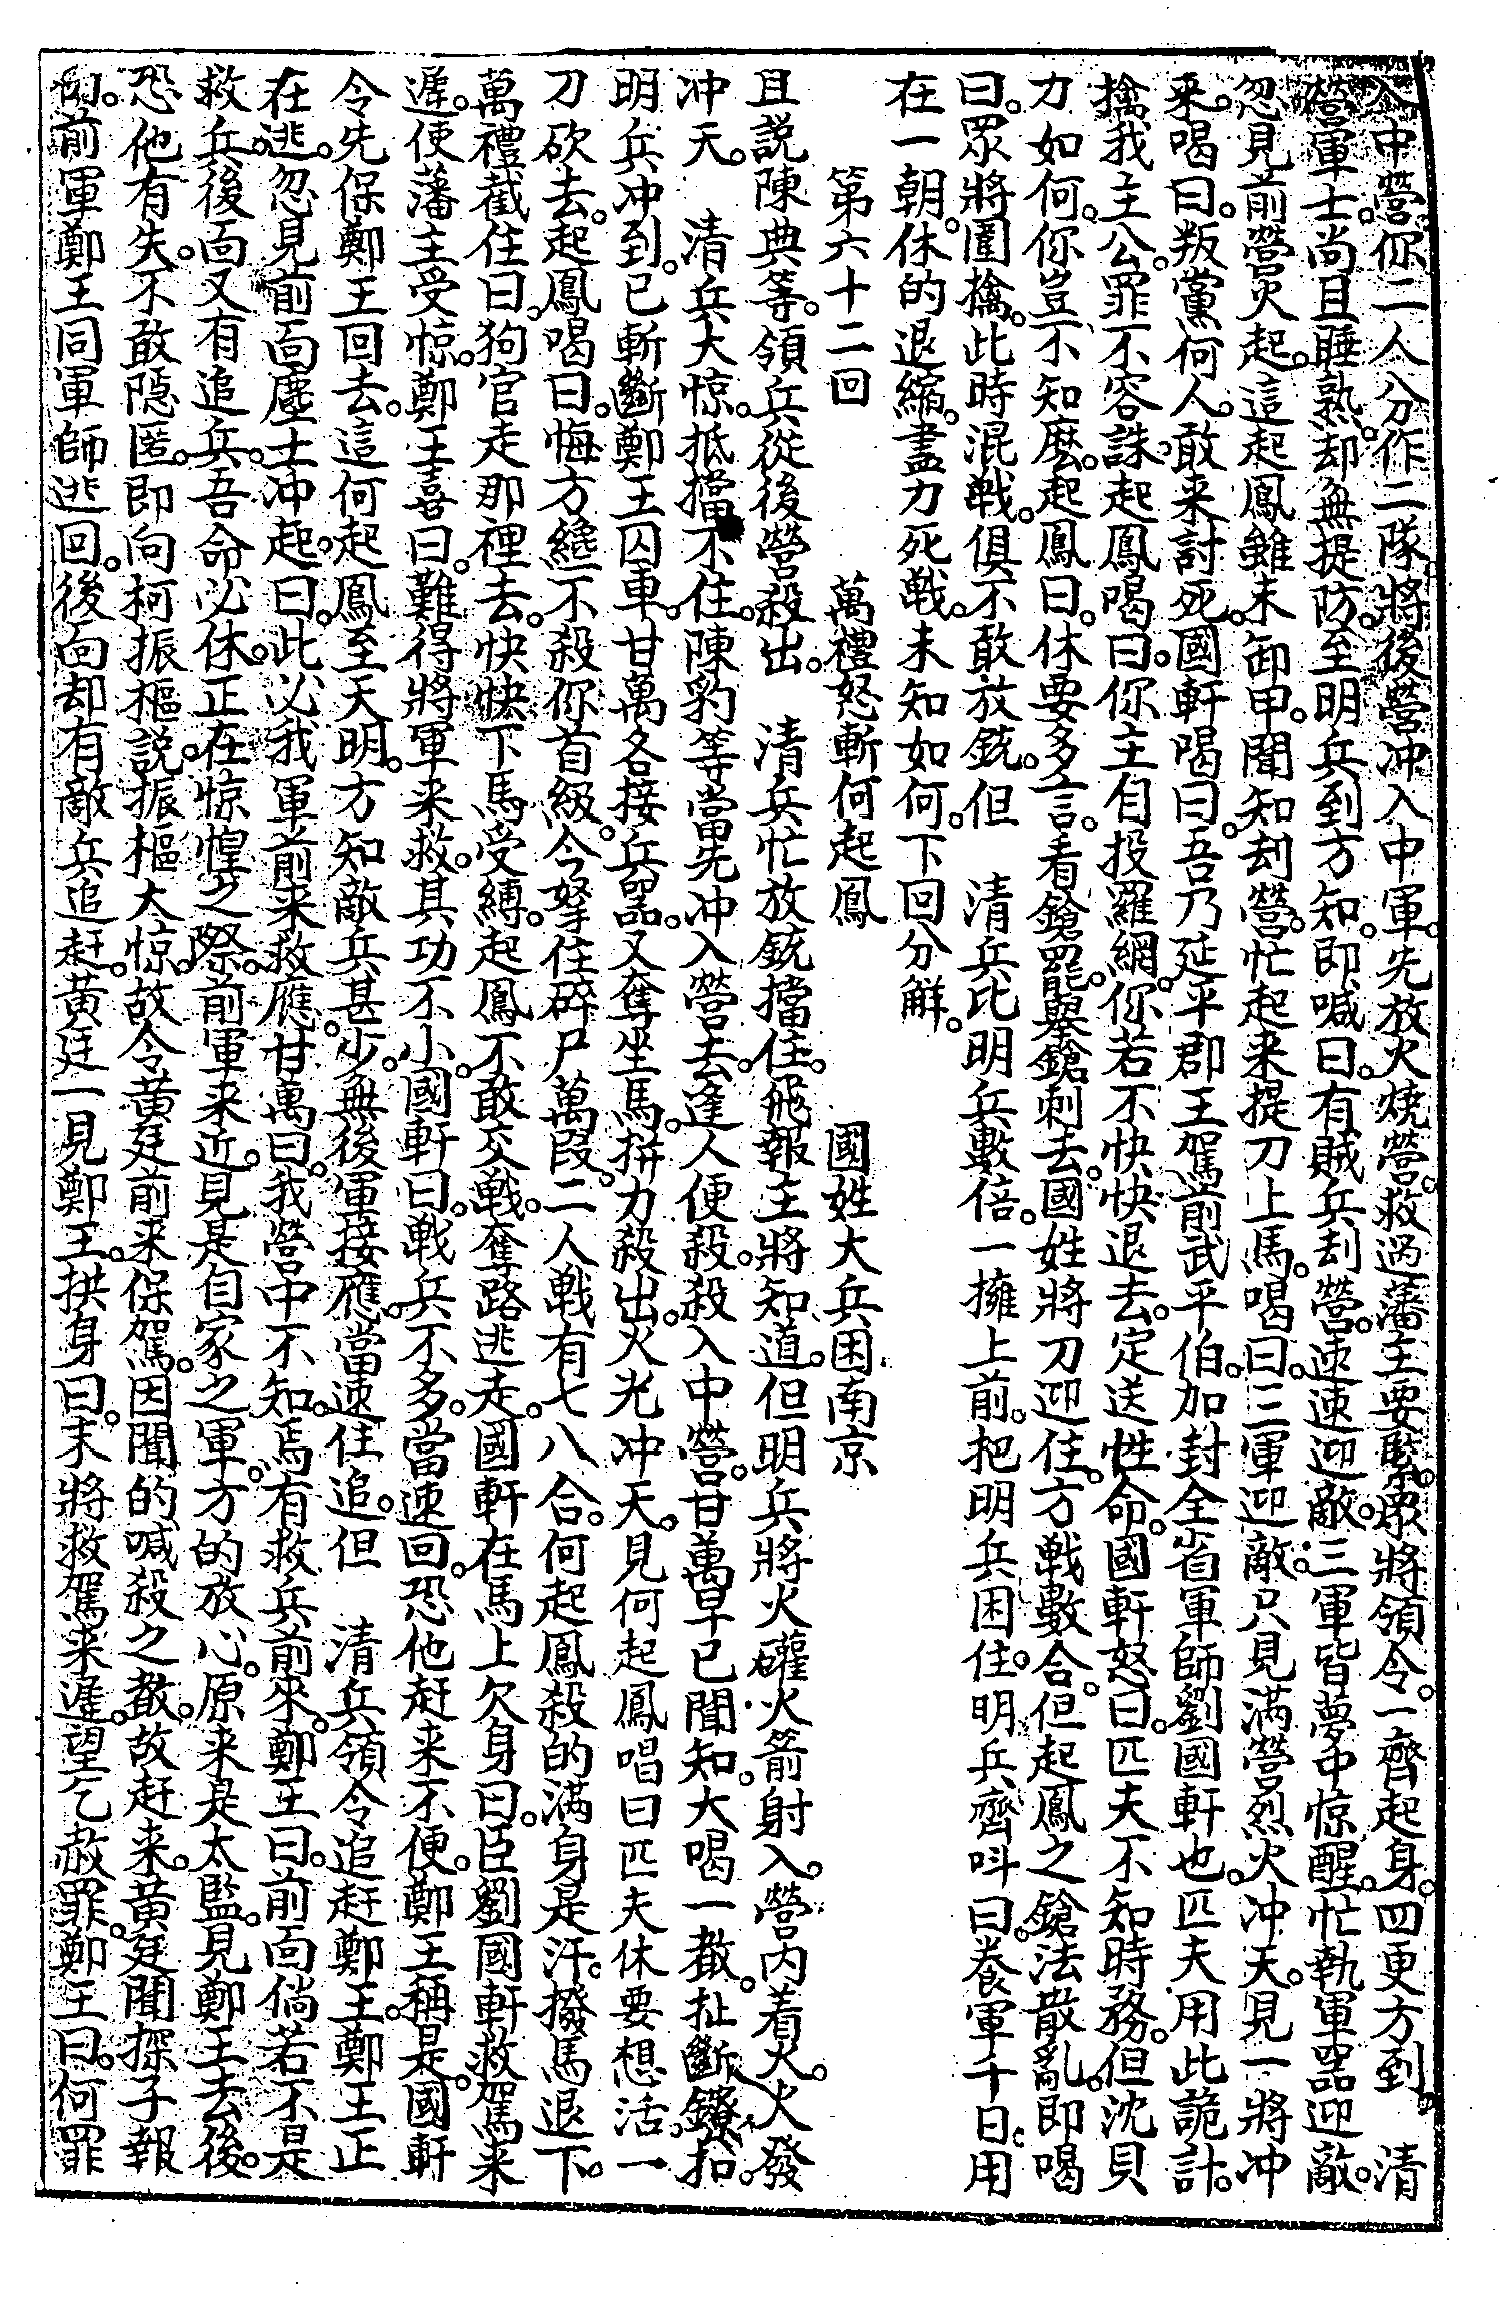 入中營你二人分作二隊將後營冲入中軍。先放火燒營。救過藩主要緊。眾將領令。一齊起身。四更方到　清
營軍士。尚且睡熟。却無提防。至明兵到方知。即喊曰。有賊兵刦營。速速迎敵。三軍皆夢中惊醒。忙執軍器迎敵。
忽見前營火起。這起鳳雖未卸甲。聞知刦營。忙起来提刀上馬。喝曰。三軍迎敵。只見满營烈火冲天。見一將冲
来。喝曰。叛黨何人。敢来討死。國軒喝曰。吾乃延平郡王駕前武平伯。加封全省軍師劉國軒也。匹夫用此詭計。
擒我主公。罪不容誅。起鳳喝曰。你主自投羅網。你若不快快退去。定送性命。國軒怒曰。匹夫不知時務。但沈貝
力如何。你豈不知麽。起鳳曰。休要多言。看鎗罷。舉鎗刺去。國姓將刀迎住。方戰數合。但起鳳之鎗法散亂。即喝
曰。眾將圍擒。此時混戰。俱不敢放銃。但　清兵比明兵數倍。一擁上前。把明兵困住。明兵齊呌曰。養軍千日。用
在一朝。休的退縮。盡力死戰。未知如何。下回分解。
第六十二回　萬禮怒斬何起鳳　國姓大兵困南京
且説陳典等。領兵從後營殺出。　清兵忙放銃擋住。飛報主將知道。但明兵將火礶火箭射入。營内着火。火發
冲天。　清兵大惊。抵擋不住。陳豹等當先冲入營去。逢人便殺。殺入中營。甘萬早已聞知。大喝一聲。扯斷鐐扣。
明兵冲到。已斬斷鄭王囚車。甘萬各接兵器。又奪坐馬。拼力殺出。火光冲天。見何起鳳唱曰匹夫休要想活。一
刀砍去。起鳳喝曰。悔方纔不殺你首級。今拏住碎尸萬段。二人戰有七八合。何起鳳殺的满身是汗。撥馬退下。
萬禮截住曰。狗官走那裡去。快快下馬受縛。起鳳不敢交戰。奪路逃走。國軒在馬上欠身曰。臣劉國軒救駕来
遲。使藩主受惊。鄭王喜曰。難得將軍来救。其功不小。國軒曰。戰兵不多。當速回。恐他赶来不便。鄭王稱是。國軒
令先保鄭王回去。這何起鳳至天明。方知敵兵甚少。無後軍接應。當速住追。但　清兵領令追赶鄭王。鄭王正
在逃。忽見前面塵土冲起。曰。此必我軍前来救應。甘萬曰。我營中不知。焉有救兵前來。鄭王曰。前面倘若不是
救兵。後面又有追兵。吾命必休。正在惊惶之際。前軍来近。見是自家之軍。方的放心。原来是太監。見鄭王去後。
恐他有失。不敢隱匿。即向柯振樞説。振樞大惊。故令黃廷前来保駕。因聞的喊殺之聲。故赶来。黃廷聞探子報
前軍鄭王同軍師逃回。後面却有敵兵追赶。黃廷一見鄭王。拱身曰。末將救駕来遲。望乞赦罪。鄭王曰。何罪